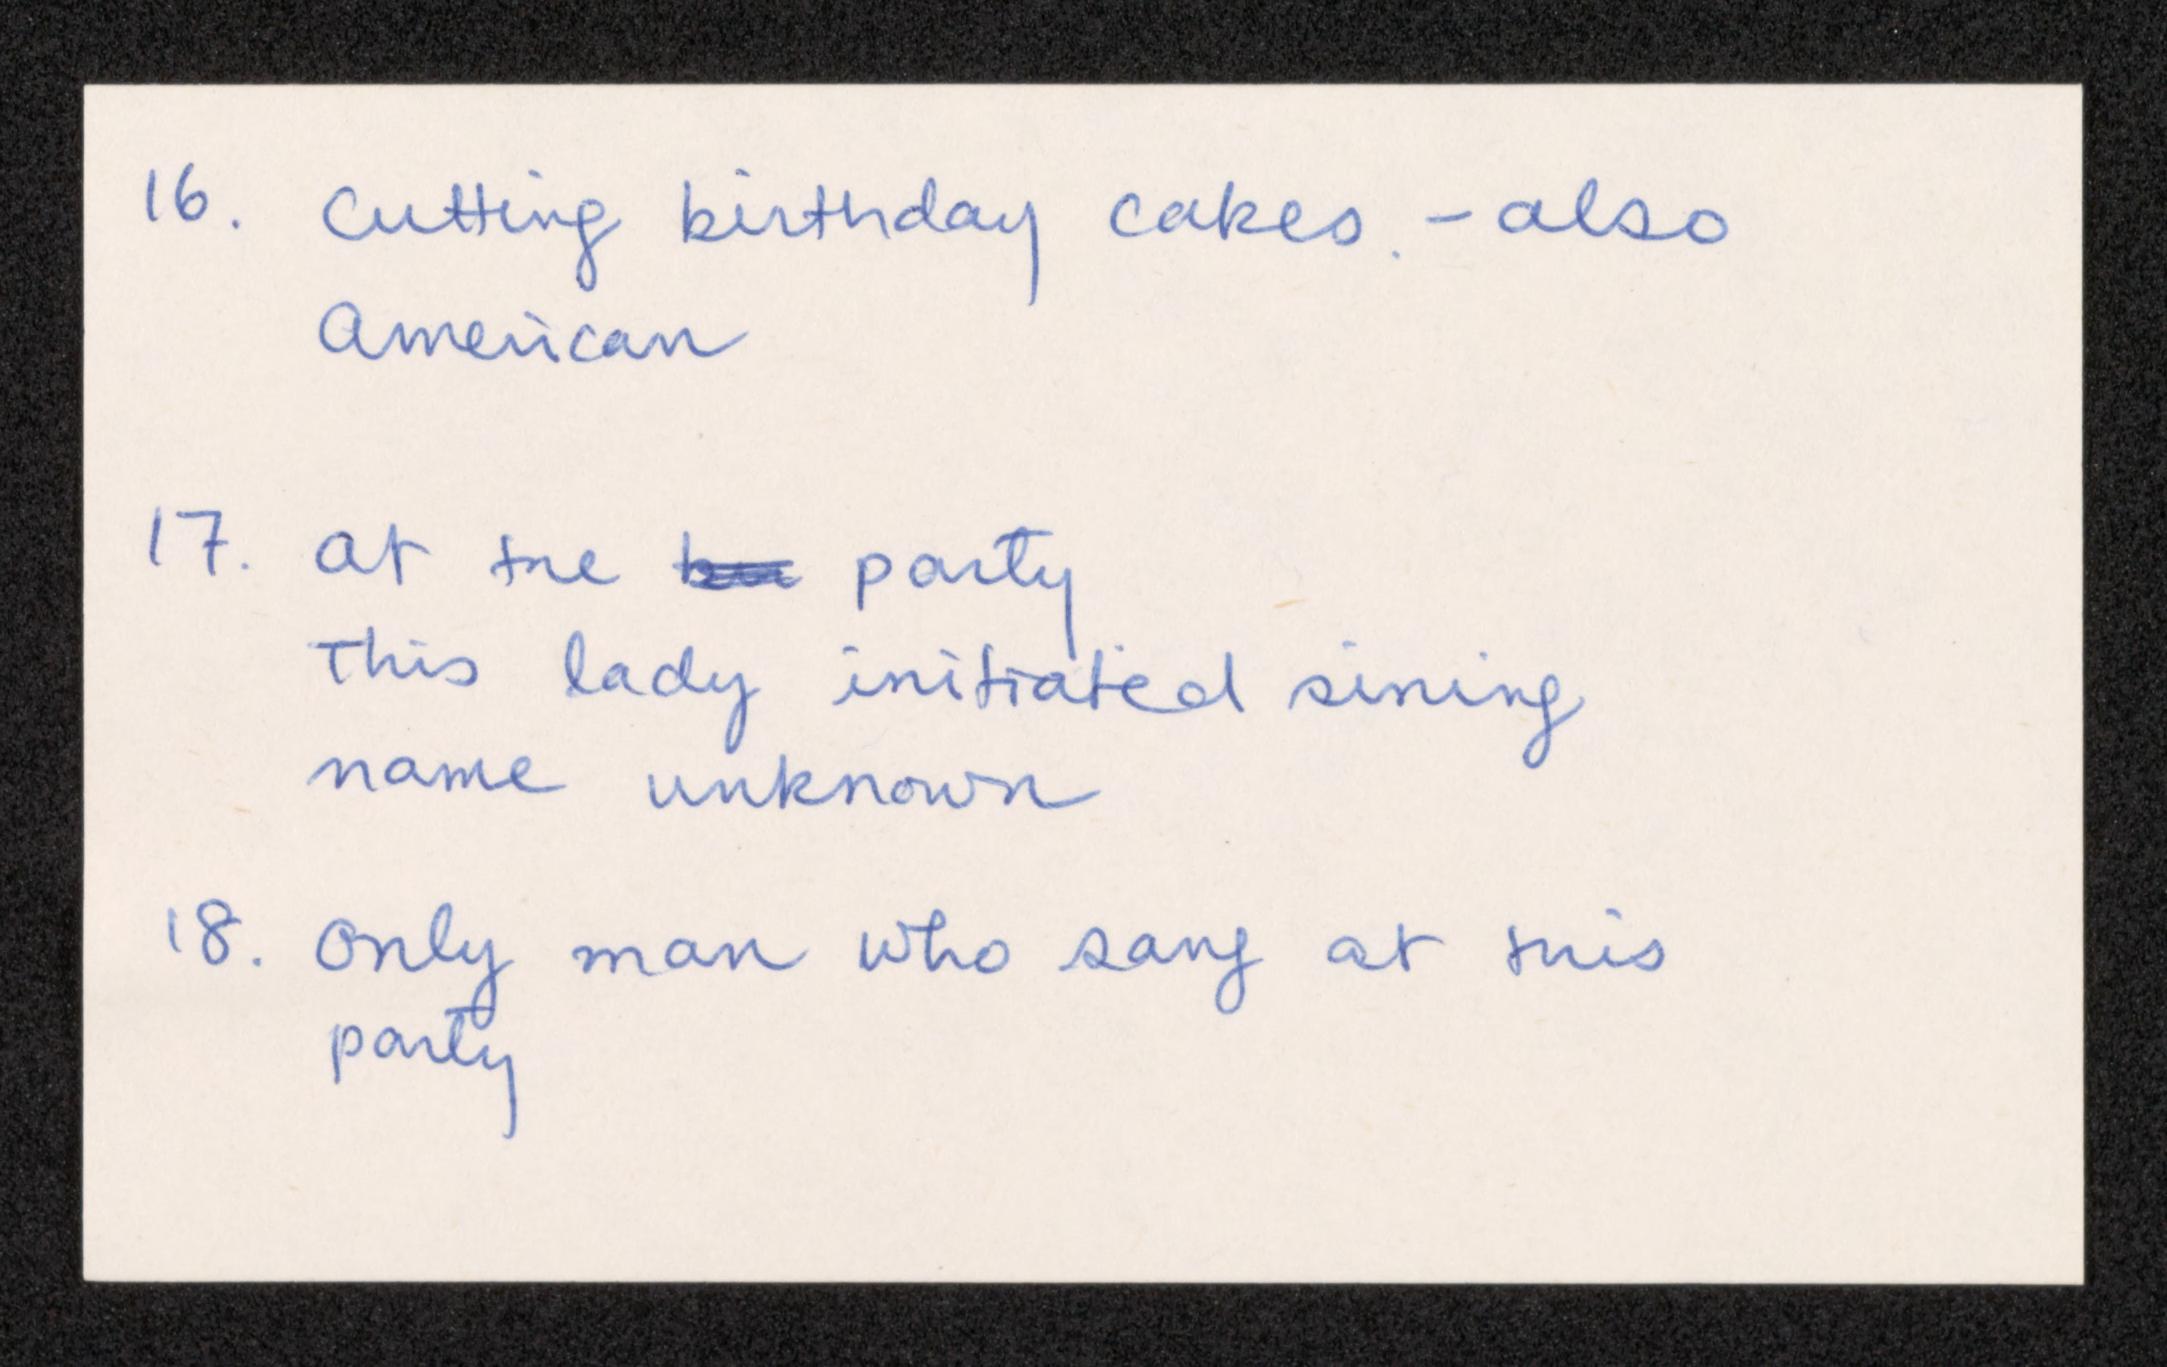 16. Cutting birthday cakes. - also
American
17. at the party
This lady initiated sining
name unknown
18. only man who sang at this
party